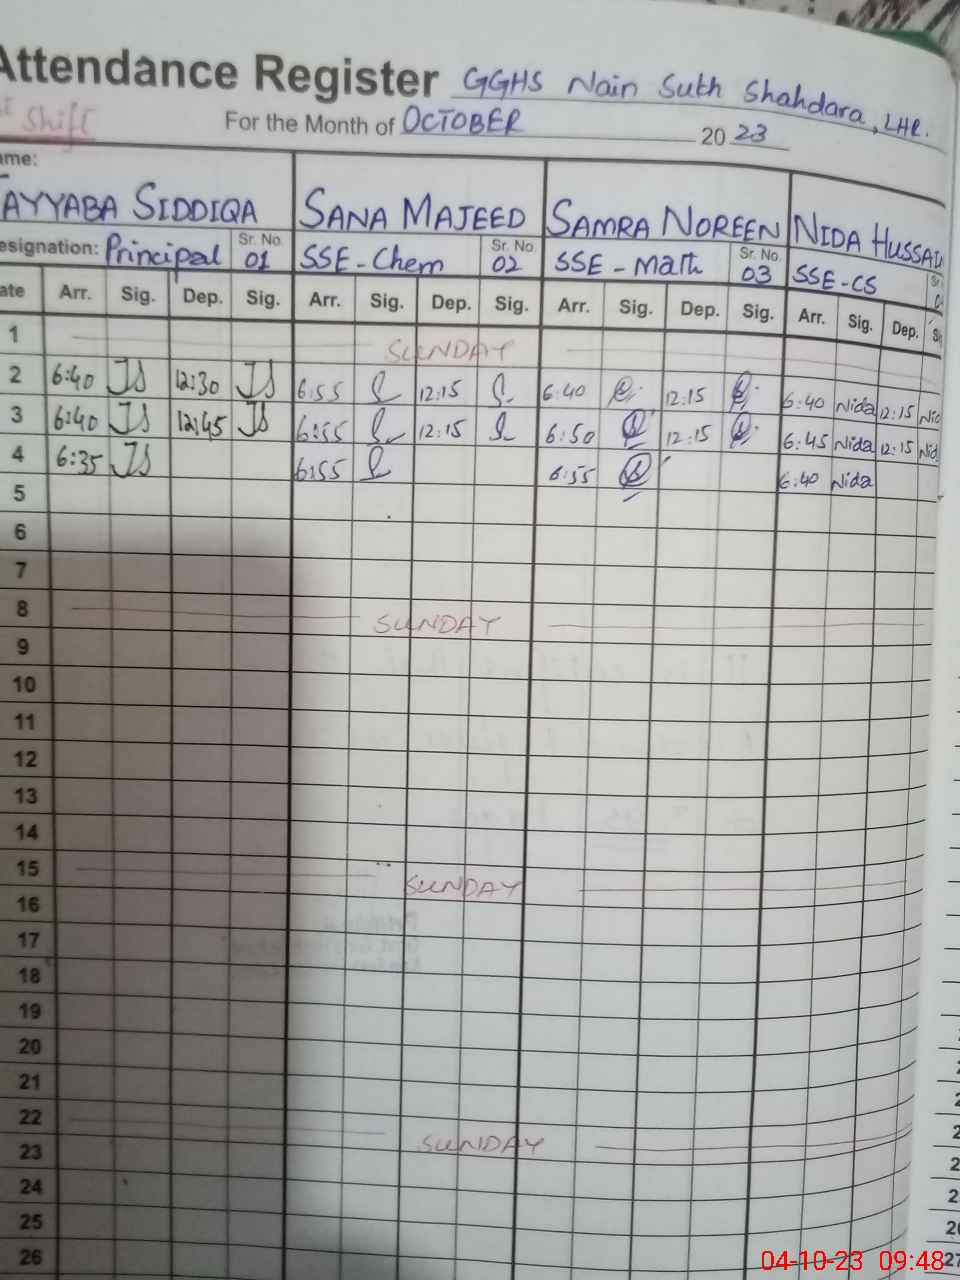 Attendance Register GGHS Nain Sukh Shahdara, LHR.
Shift For the Month of OCTOBER 2023
ame:
TAYYABA SIDDIQA SANA MAJEED SAMRA NOREEN NIDA HUSSAI
esignation: Principal Sr. No. 01 SSE-Chem Sr. No. 02 SSE - Math Sr. No. 03 SSE-CS
ate Arr. Sig. Dep. Sig. Arr. Sig. Dep. Sig. Arr. Sig. Dep. Sig. Arr. Sig. Dep.
1 SUNDAY
2 6:40 JS 12:30 JS 6:55 12:15 6:40 12:15 6:40 Nida 12:15 Nid
3 6:40 JS 12:45 JS 6:55 12:15 6:50 12:15 6:45 Nida 12:15 Nid
4 6:35 JS 6:55 6:55 6:40 Nida
5
6
7
8 SUNDAY
9
10
11
12
13
14
15 SUNDAY
16
17
18
19
20
21
22 SUNDAY
23
24
25
26
04-10-23 09:48